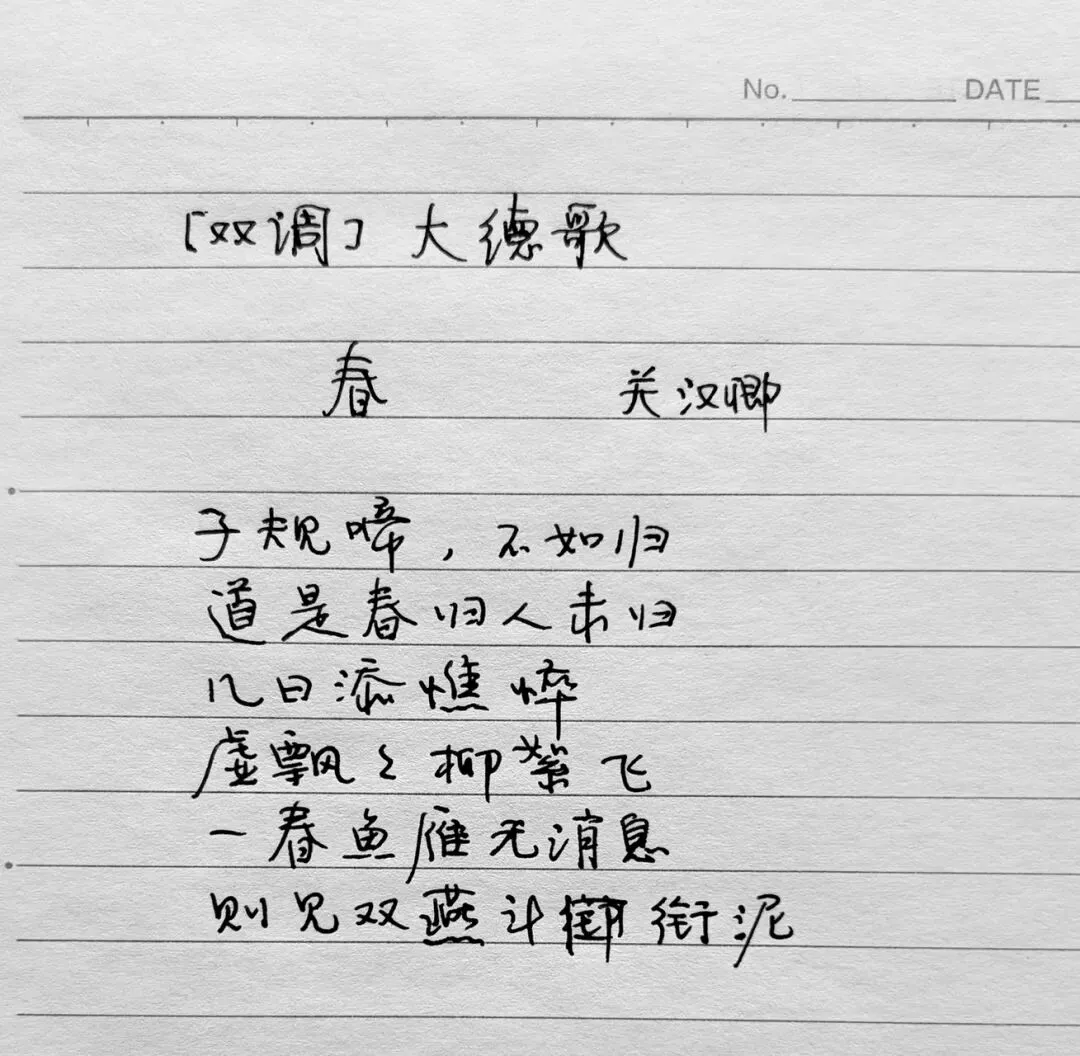 No. DATE
「双调」大德歌
春 关汉卿
子规啼，不如归
道是春归人未归
几日添憔悴
虚飘々柳絮飞
一春鱼雁无消息
则见双燕斗衔泥